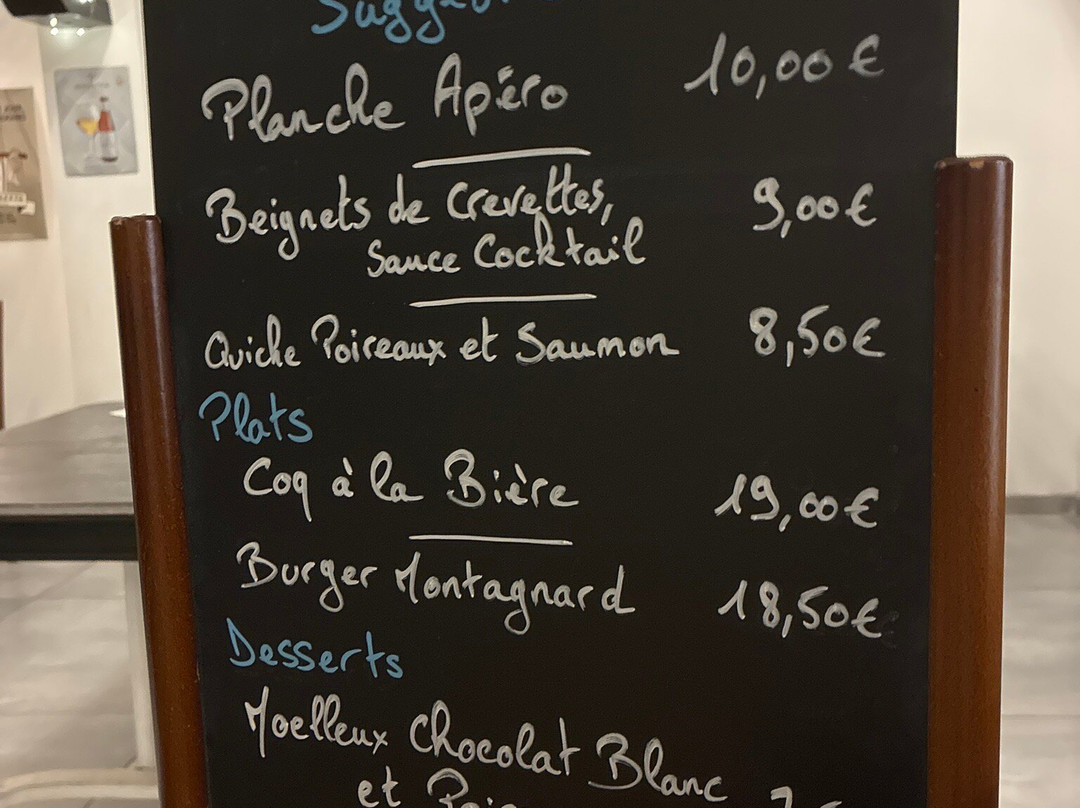 Planche Apéro 10,00 €
Beignets de Crevettes, 9,00 €
Sauce Cocktail
Quiche Poireaux et Saumon 8,50 €
Plats
Coq à la Bière 19,00 €
Burger Montagnard 18,50 €
Desserts
Moelleux Chocolat Blanc
et